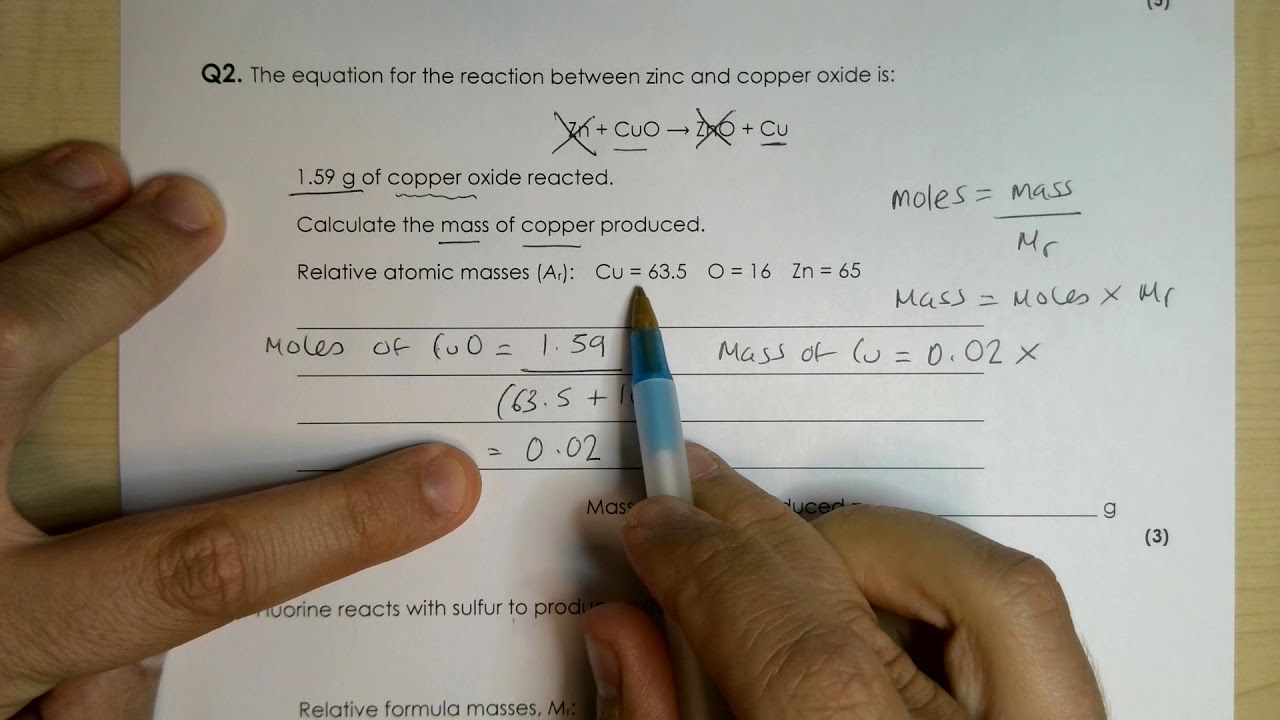 (3)
Q2. The equation for the reaction between zinc and copper oxide is:
Zn + CuO → ZnO + Cu
1.59 g of copper oxide reacted.
moles = mass
Mr
Calculate the mass of copper produced.
Relative atomic masses (Ar): Cu = 63.5 O = 16 Zn = 65
Mass = Moles × Mr
Moles of CuO = 1.59
(63.5 +
= 0.02
Mass of Cu = 0.02 ×
Mass g
(3)
reacts with sulfur to
Relative formula masses, Mr: